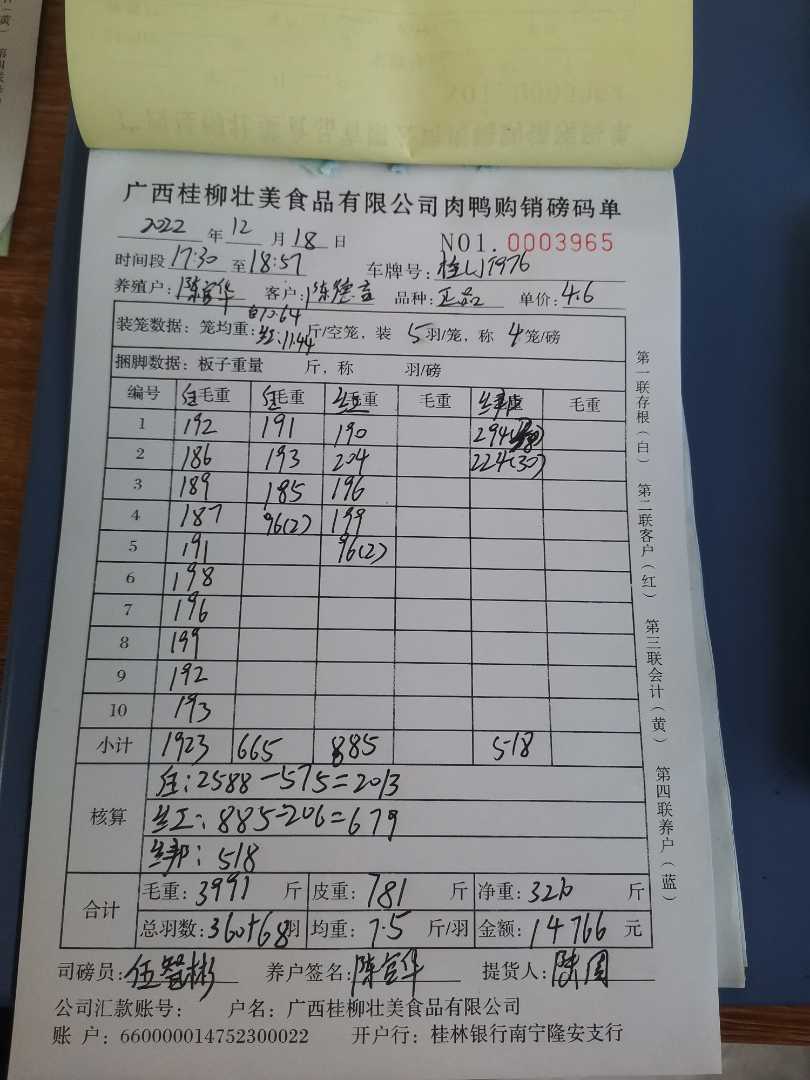 广西桂柳壮美食品有限公司肉鸭购销磅码单
2022 年 12 月 18 日 NO1. 0003965
时间段 17:30 至 18:57 车牌号: 7976
养殖户: 陈官华 客户: 品种: 正品 单价: 4.6
装笼数据: 笼均重: 斤/空笼, 装 5 羽/笼, 称 4 笼/磅
捆脚数据: 板子重量 斤, 称 羽/磅
编号 毛重 毛重 毛重 毛重 毛重
1 192 191 190 294
2 186 193 204 224(30)
3 189 185 196
4 187 96(2) 199
5 191 96(2)
6 198
7 196
8 199
9 192
10 193
小计 1923 665 885 518
核算
2588-575=2013
885-206=679
518
合计
毛重: 3991 斤 皮重: 781 斤 净重: 3210 斤
总羽数: 360+68 羽 均重: 7.5 斤/羽 金额: 14766 元
司磅员: 养户签名: 陈官华 提货人:
公司汇款账号: 户名: 广西桂柳壮美食品有限公司
账 户: 660000014752300022 开户行: 桂林银行南宁隆安支行
第一联存根(白) 第二联客户(红) 第三联会计(黄) 第四联养户(蓝)